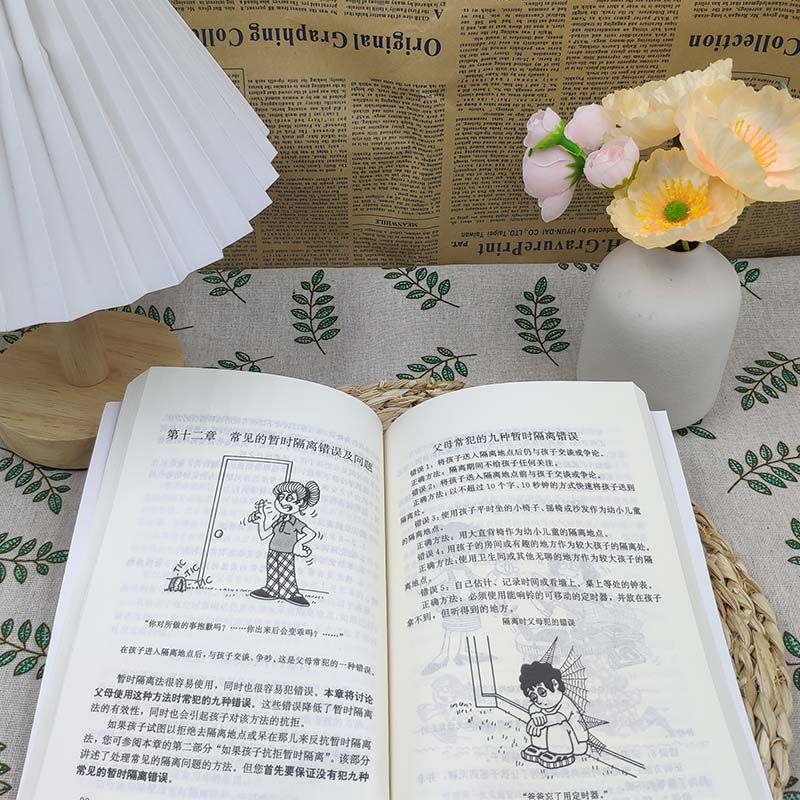 Original Graphing Collection
Collection
MEANWHILE
H.GravurePrint
PAT.
Conducted by HYUN-DAI CO, LTD, Taipei Taiwan
第十二章 常见的暂时隔离错误及问题
TIC
TIC
TIC
“你对所做的事抱歉吗？……你出来后会变乖吗？……”
在孩子进入隔离地点后，与孩子交谈、争吵，这是父母常犯的一种错误。
暂时隔离法很容易使用，同时也很容易犯错误。本章将讨论
父母使用这种方法时常犯的九种错误。这些错误降低了暂时隔离
法的有效性，同时也会引起孩子对该方法的抗拒。
如果孩子试图以拒绝去隔离地点或呆在那儿来反抗暂时隔离
法，您可参阅本章的第二部分“如果孩子抗拒暂时隔离”。该部分
讲述了处理常见的隔离问题的方法。但您首先要保证没有犯九种
常见的暂时隔离错误。
父母常犯的九种暂时隔离错误
错误1：将孩子送入隔离地点后仍与孩子交谈或争论。
正确方法：隔离期间不给孩子任何关注。
错误2：将孩子送入隔离地点前与孩子交谈或争论。
正确方法：以不超过10个字、10秒钟的方式快速将孩子送到
隔离处。
错误3：使用孩子平时坐的小椅子、摇椅或沙发作为幼小儿童
的隔离地点。
正确方法：用大直背椅作为幼小儿童的隔离地点。
错误4：用孩子的房间或有趣的地方作为较大孩子的隔离处。
正确方法：使用卫生间或其他无聊的地方作为较大孩子的隔
离地点。
错误5：自己估计、记录时间或看墙上、桌上等处的钟表。
正确方法：必须使用能响铃的可移动的定时器，并放在孩子
拿不到，但听得到的地方。
隔离时父母犯的错误
“爸爸忘了用定时器。”